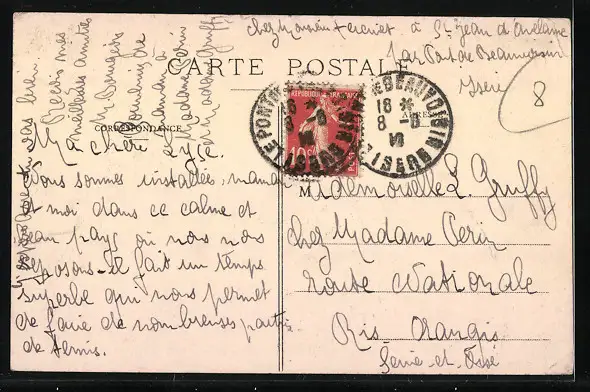 chez Monsieur à St Jean d'Avelanne
par Pont de Beauvoisin
Isère
8
CARTE POSTALE
CORRESPONDANCE
ADRESSE
REPUBLIQUE FRANÇAISE
10c
LE PONT-DE-BEAUVOISIN
18 *
8 - 8
ISERE
LE PONT-DE-BEAUVOISIN
18 *
8 - 8
ISERE
Ma chère Lyse.
Vous sommes installées, maman
et moi dans ce calme et
beau pays où nous nous
reposons. Il fait un temps
superbe qui nous permet
de faire de nombreuses parties
de tennis.
Reçois mes
meilleures amitiés
Mademoiselle L. Gruffy
chez Madame Perin
route Nationale
Ris Orangis
Seine-et-Oise